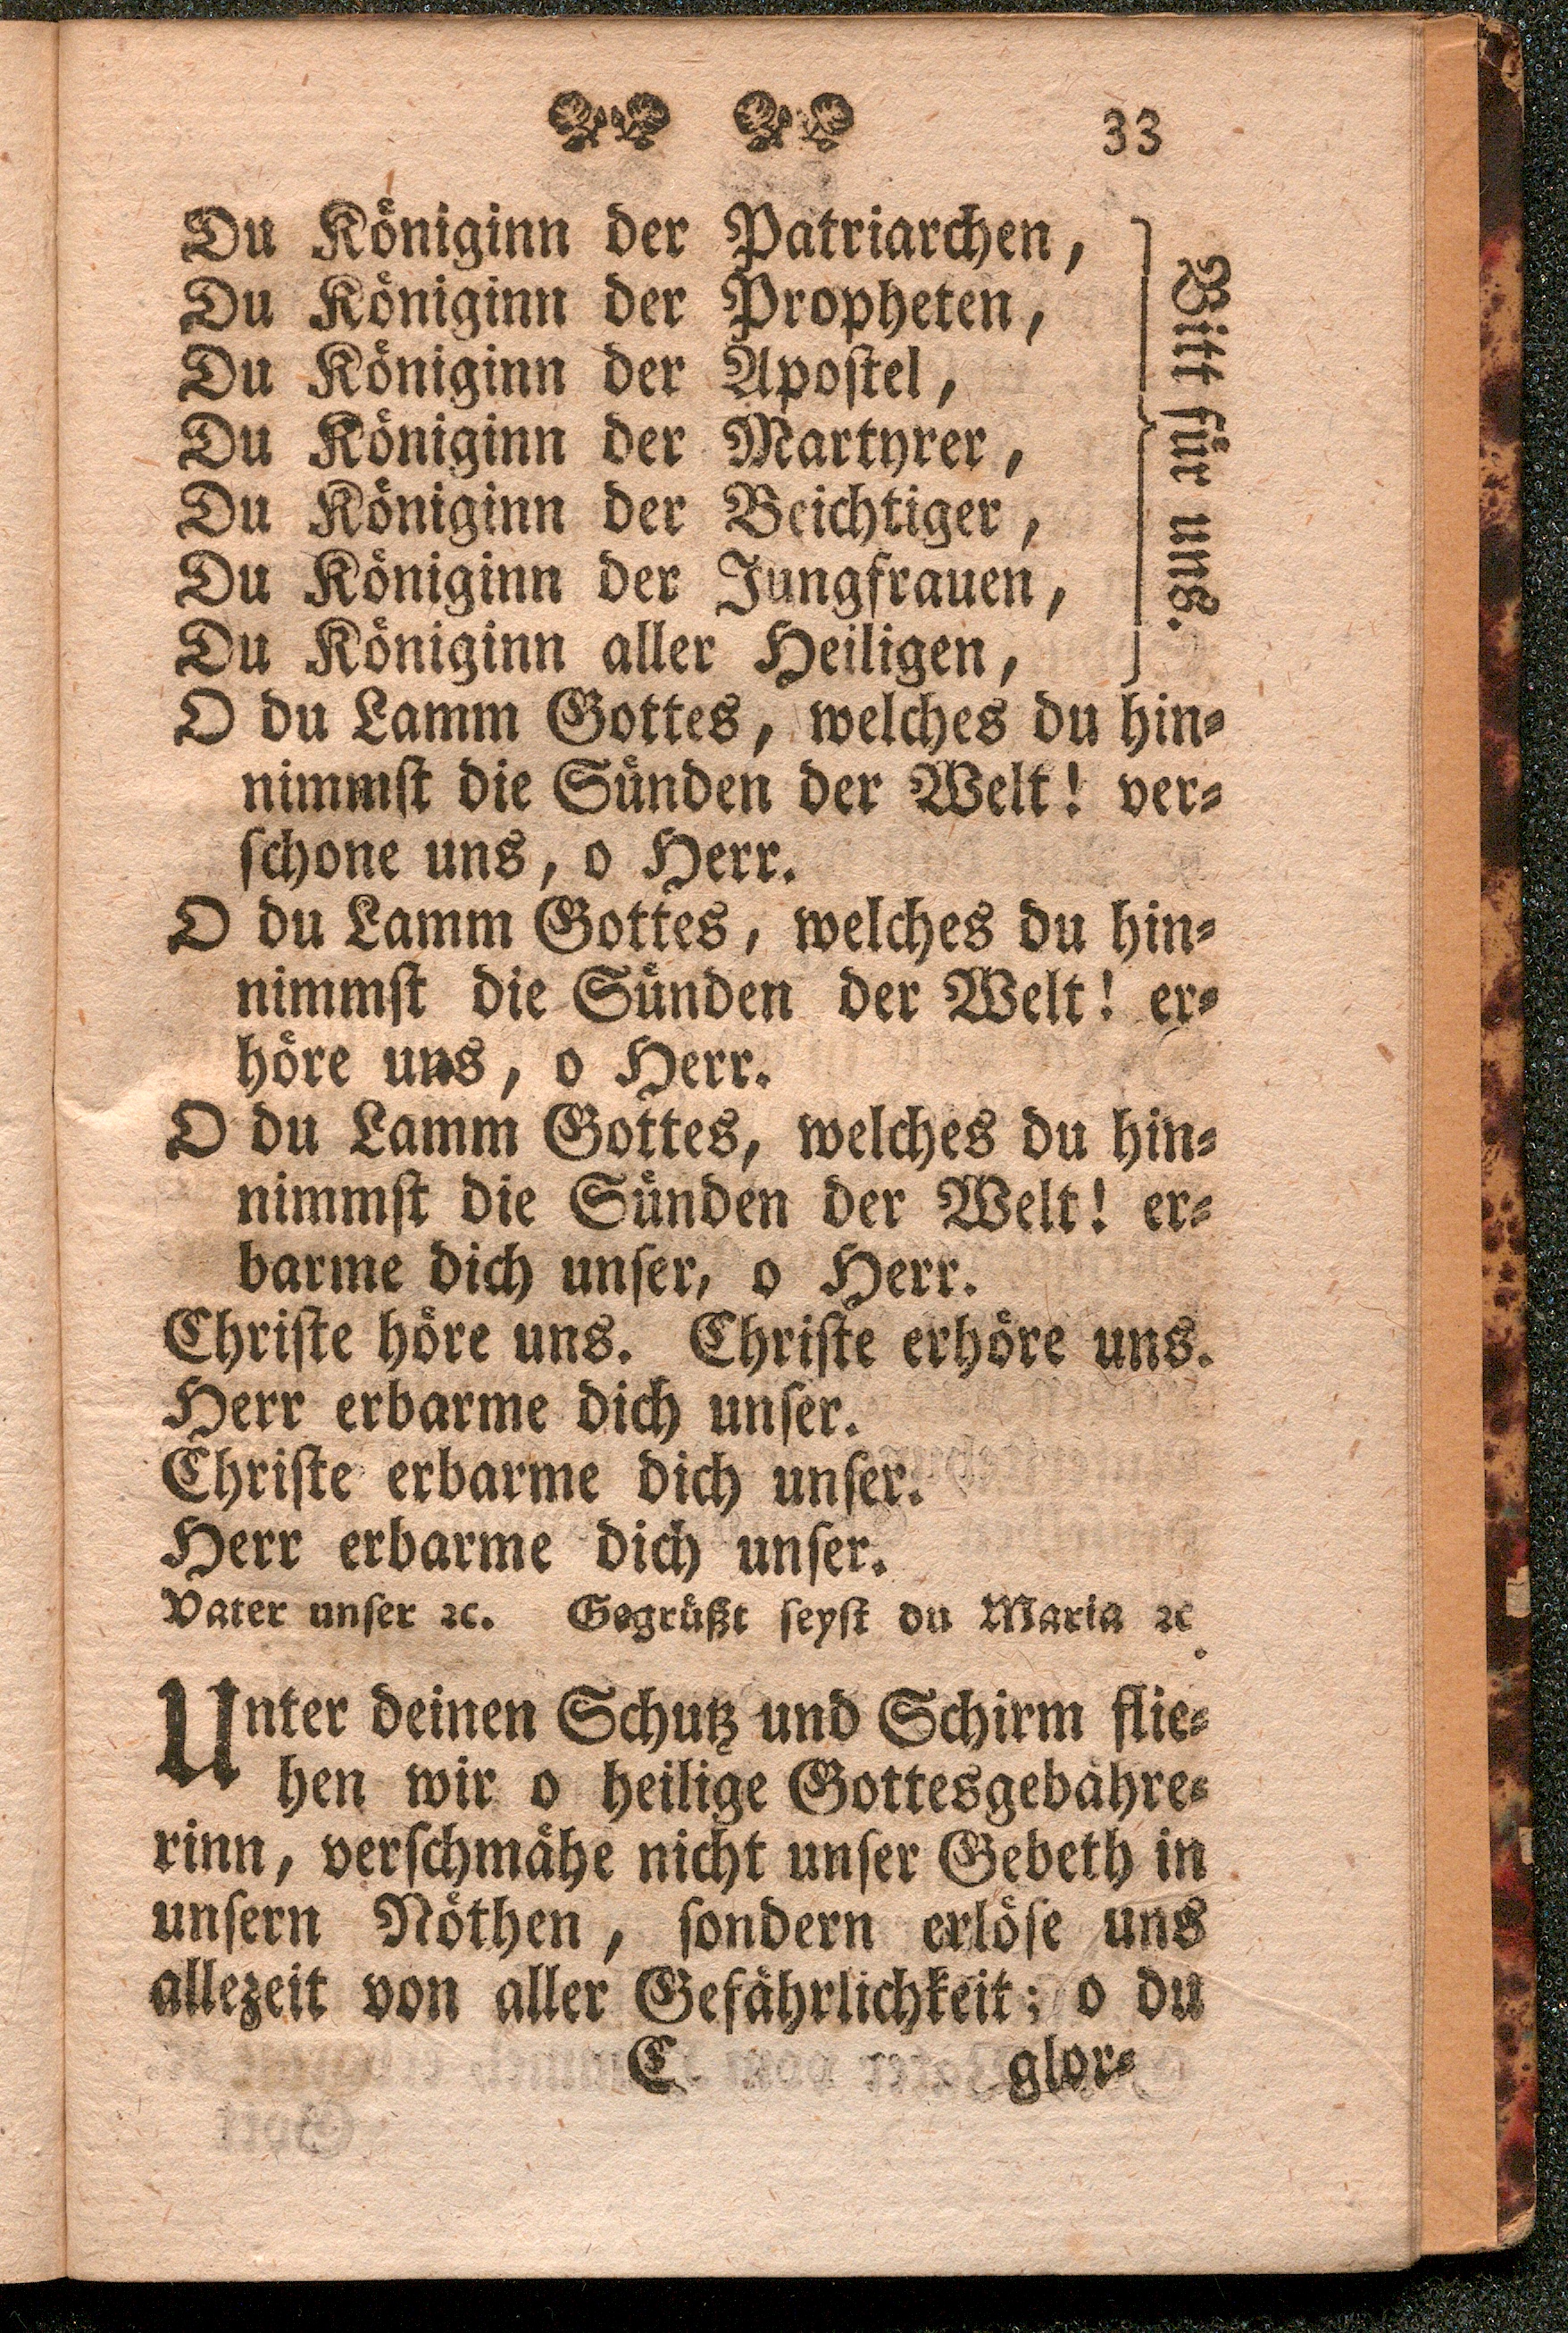 33
Du Königinn der Patriarchen,
Du Königinn der Propheten,
Du Königinn der Apostel,
Du Königinn der Martyrer,
Du Königinn der Beichtiger,
Du Königinn der Jungfrauen,
Du Königinn aller Heiligen,
Bitt für uns.
O du Lamm Gottes, welches du hin-
nimmst die Sünden der Welt! ver-
schone uns, o Herr.
O du Lamm Gottes, welches du hin-
nimmst die Sünden der Welt! er-
höre uns, o Herr.
O du Lamm Gottes, welches du hin-
nimmst die Sünden der Welt! er-
barme dich unser, o Herr.
Christe höre uns. Christe erhöre uns.
Herr erbarme dich unser.
Christe erbarme dich unser.
Herr erbarme dich unser.
Vater unser ꝛc. Gegrüßt seyst du Maria ꝛc.
Unter deinen Schutz und Schirm flie-
hen wir o heilige Gottesgebähre-
rinn, verschmähe nicht unser Gebeth in
unsern Nöthen, sondern erlöse uns
allezeit von aller Gefährlichkeit; o du
C glor-